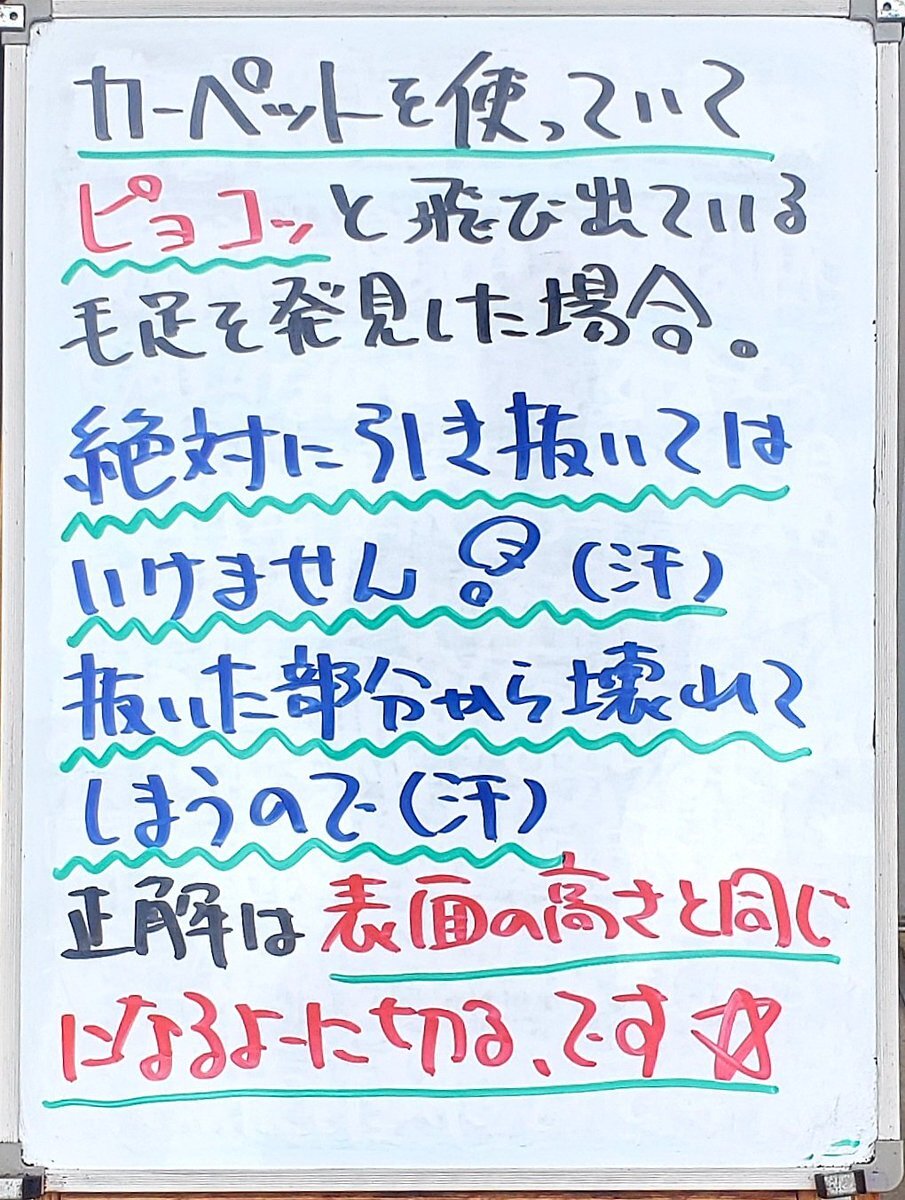 カーペットを使っていて
ピョコッと飛び出ている
毛足を発見した場合。
絶対に引き抜いては
いけません！（汗）
抜いた部分から壊れて
しまうので（汗）
正解は表面の高さと同じ
になるように切る、です☆